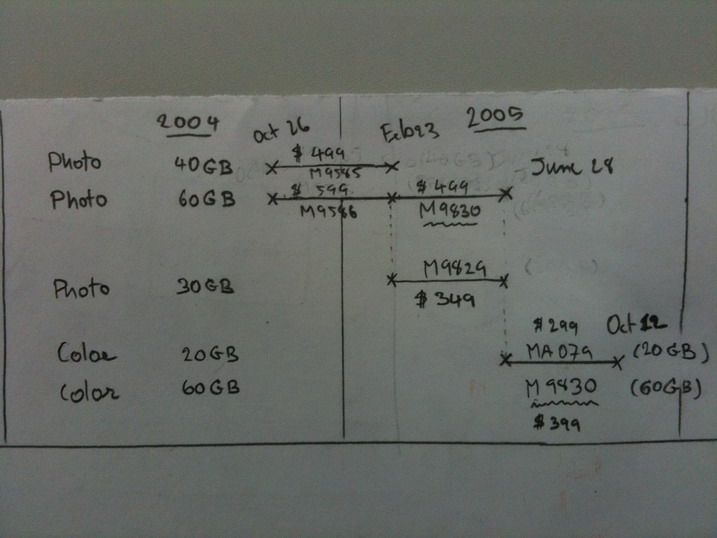 2004 2005
Oct 26 Feb 23
Photo 40GB $499 June 28
M9585
Photo 60GB $599 $499
M9586 M9830
Photo 30GB M9829
$349
$299 Oct 12
Color 20GB MA079 (20GB)
Color 60GB M9830 (60GB)
$399